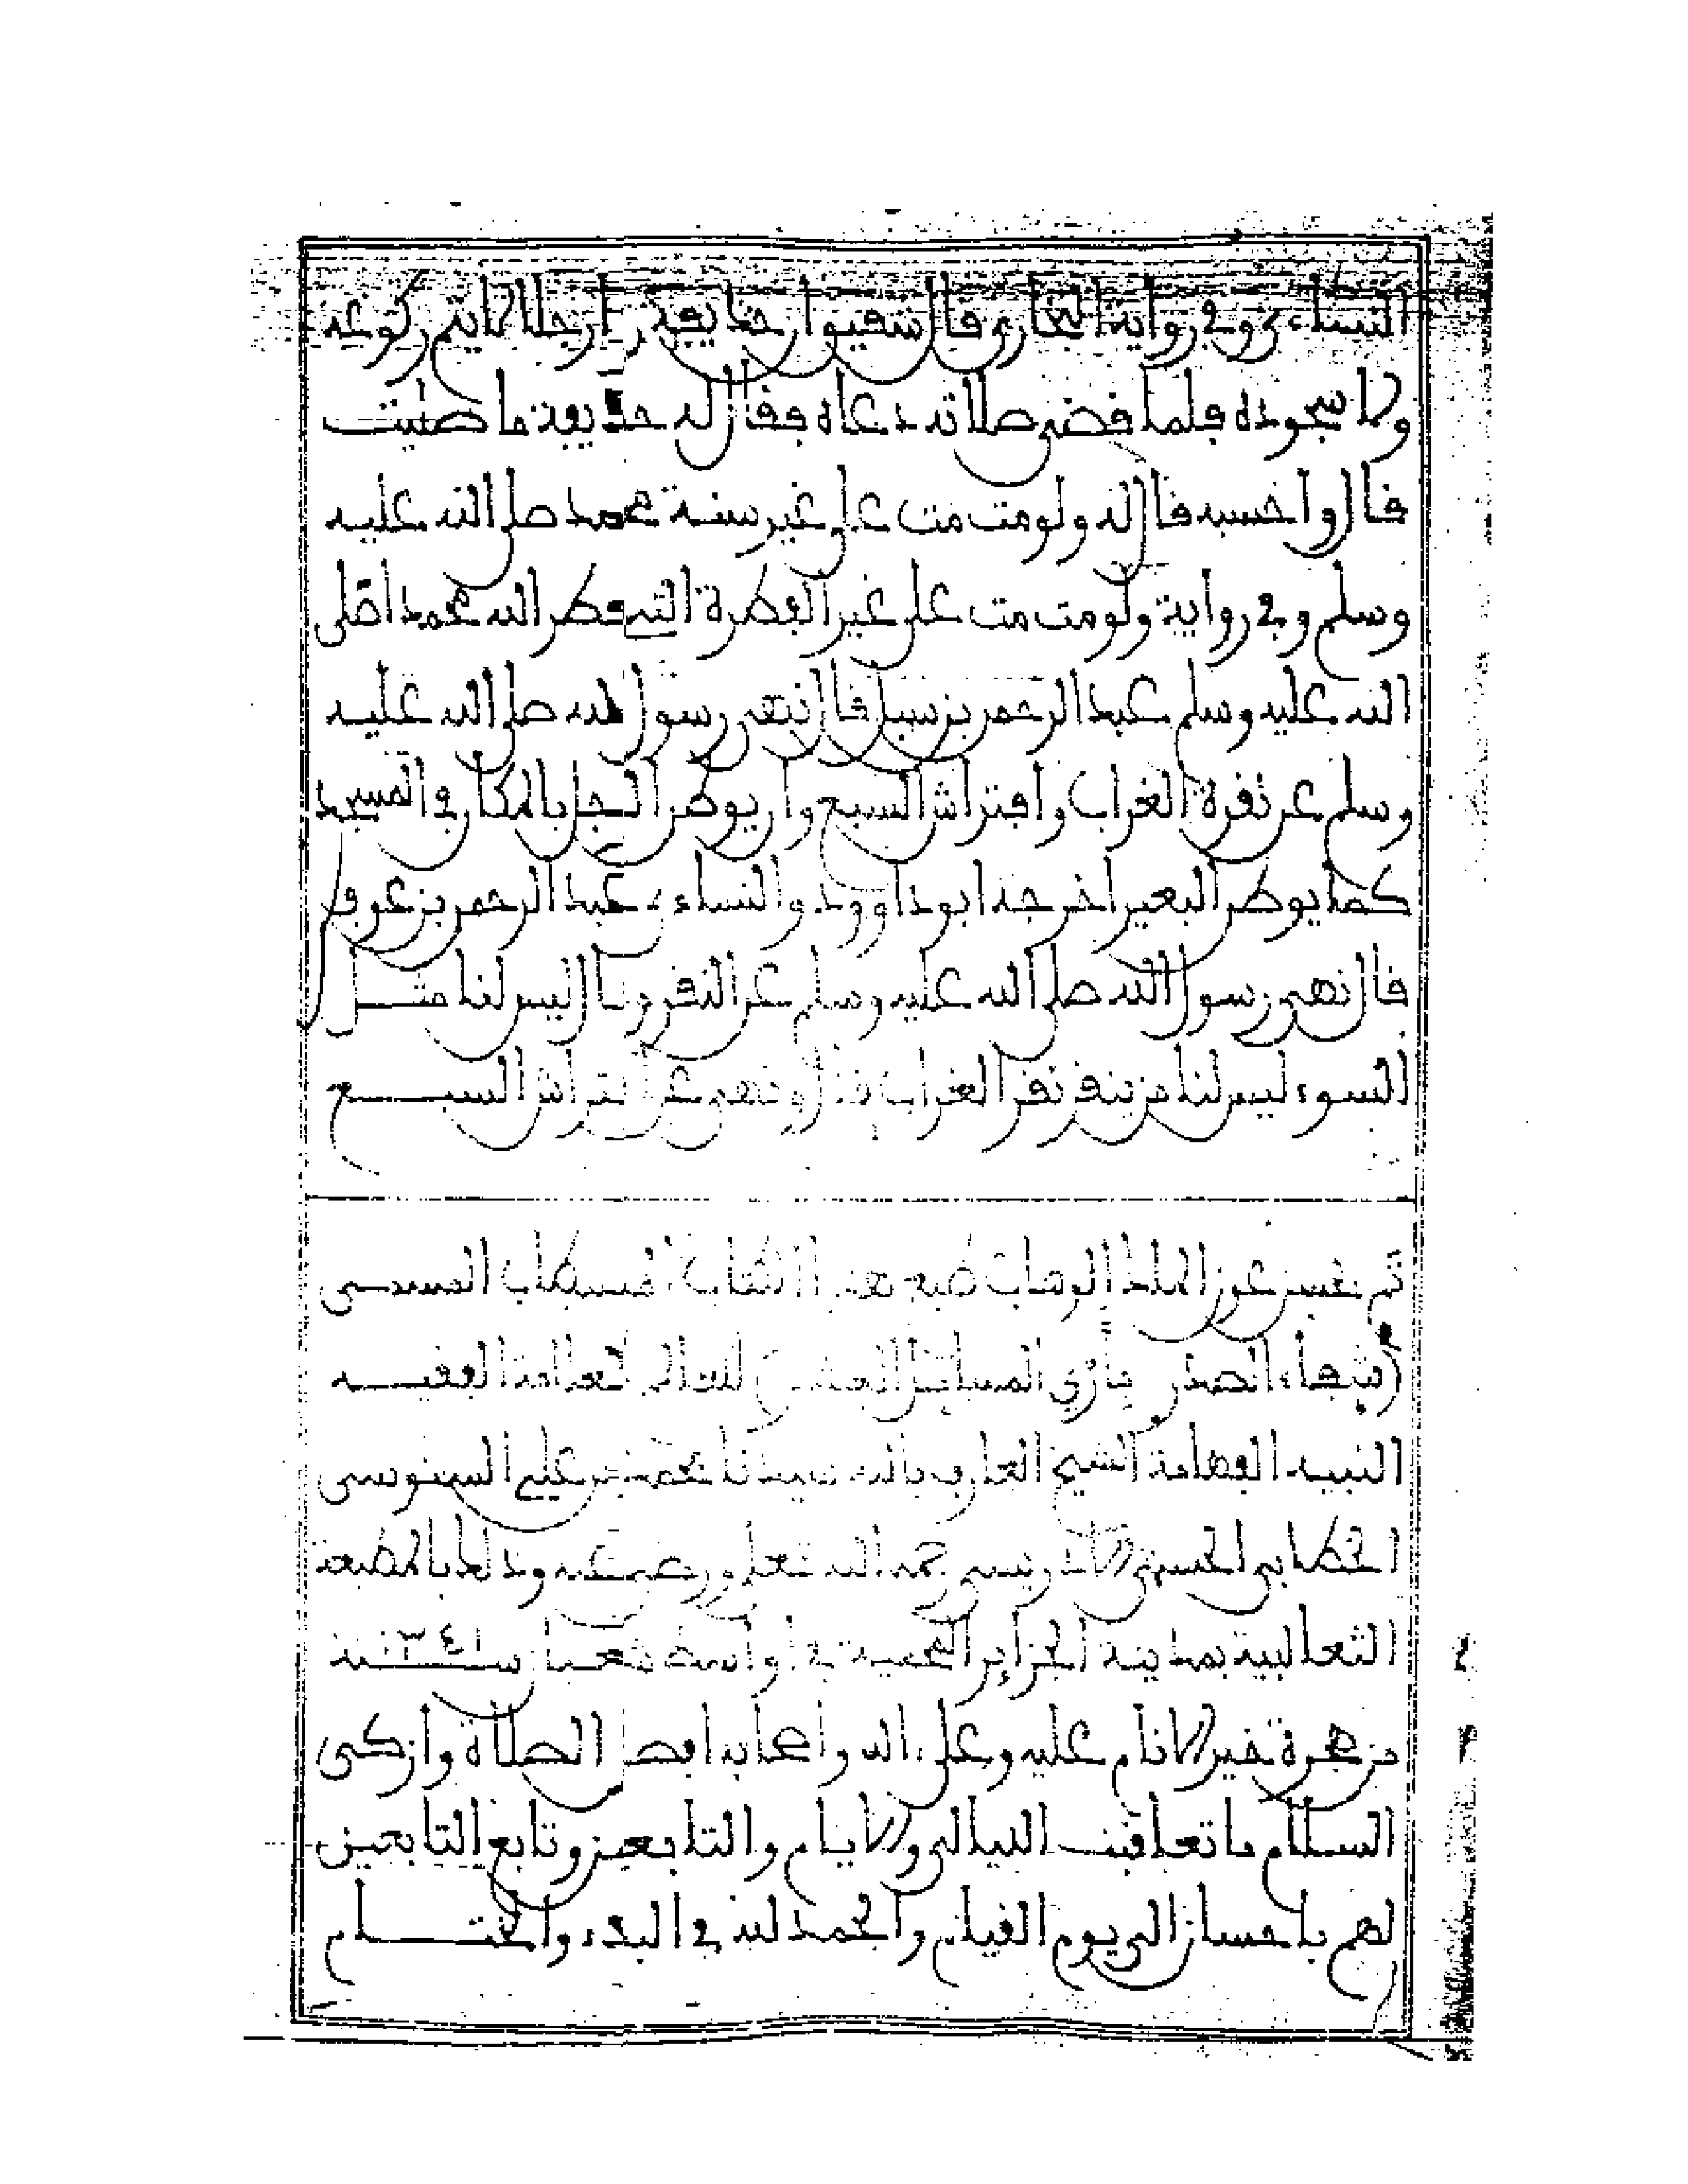 النساءى وفي رواية البخارى قال شقيق ان حذيفة رأى رجلا لا يتم ركوعه
ولا سجوده فلما قضى صلاته دعاه فقال له حذيفة ما صليت
قال واحسبه قال له ولو مت مت على غير سنة محمد صلى الله عليه
وسلم وفي رواية ولو مت مت على غير الفطرة التى فطر الله محمدا صلى
الله عليه وسلم عبد الرحمن بن شبل قال نهى رسول الله صلى الله عليه
وسلم عن نقرة الغراب وافتراش السبع وان يوطن الرجل بالمكان في المسجد
كما يوطن البعير اخرجه ابو داوود والنساءى عبد الرحمن بن عوف
قال نهى رسول الله صلى الله عليه وسلم عن النقر وقال ليس لنا مثل
السوء ليس لنا من ينقر نقر الغراب قال ونهى عن افتراش السبع
تم بحسن عون الملك الوهاب طبع هذا الكتاب المستطاب المسمى
(بشفاء الصدر بأرى المسائل العشر) للعالم العلامة الفقيه
النبيه الفهامة الشيخ العارف بالله سيدنا محمد بن علي السنوسى
الخطابى الحسنى الادريسى رحمه الله تعلى ورضى عنه وذلك بالمطبعة
الثعالبية بمدينة الجزاير المحمية في اواسط شعبان سنة
من هجرة خير الانام عليه وعلى ءاله واصحابه افضل الصلاة وازكى
السلام ما تعاقبت الليالى والايام والتابعين وتابع التابعين
لهم باحسان الى يوم القيام والحمد لله في البدء والختام